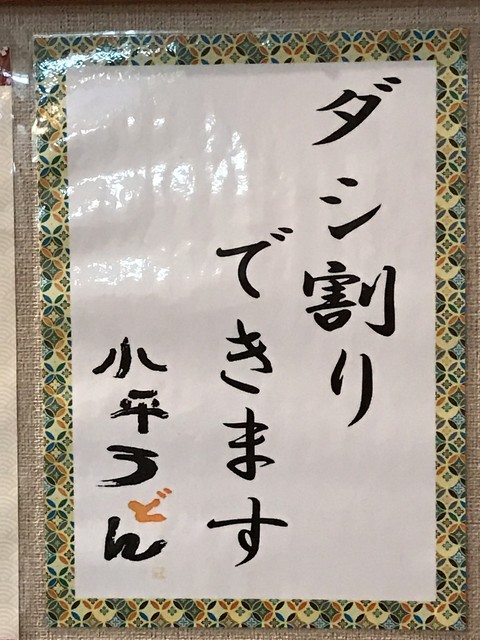 ダシ割り
できます
小平うどん